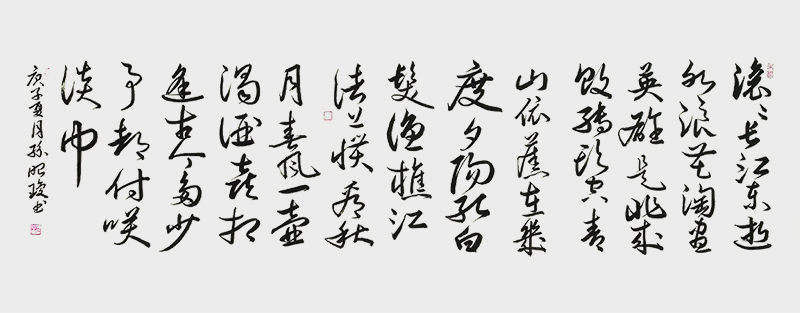 滚滚长江东逝
水浪花淘盡
英雄是非成
败转头空青
山依舊在幾
度夕陽红白
髮渔樵江
渚上惯看秋
月春風一壶
濁酒喜相
逢古今多少
事都付笑
谈中
庚子夏月孙昭书